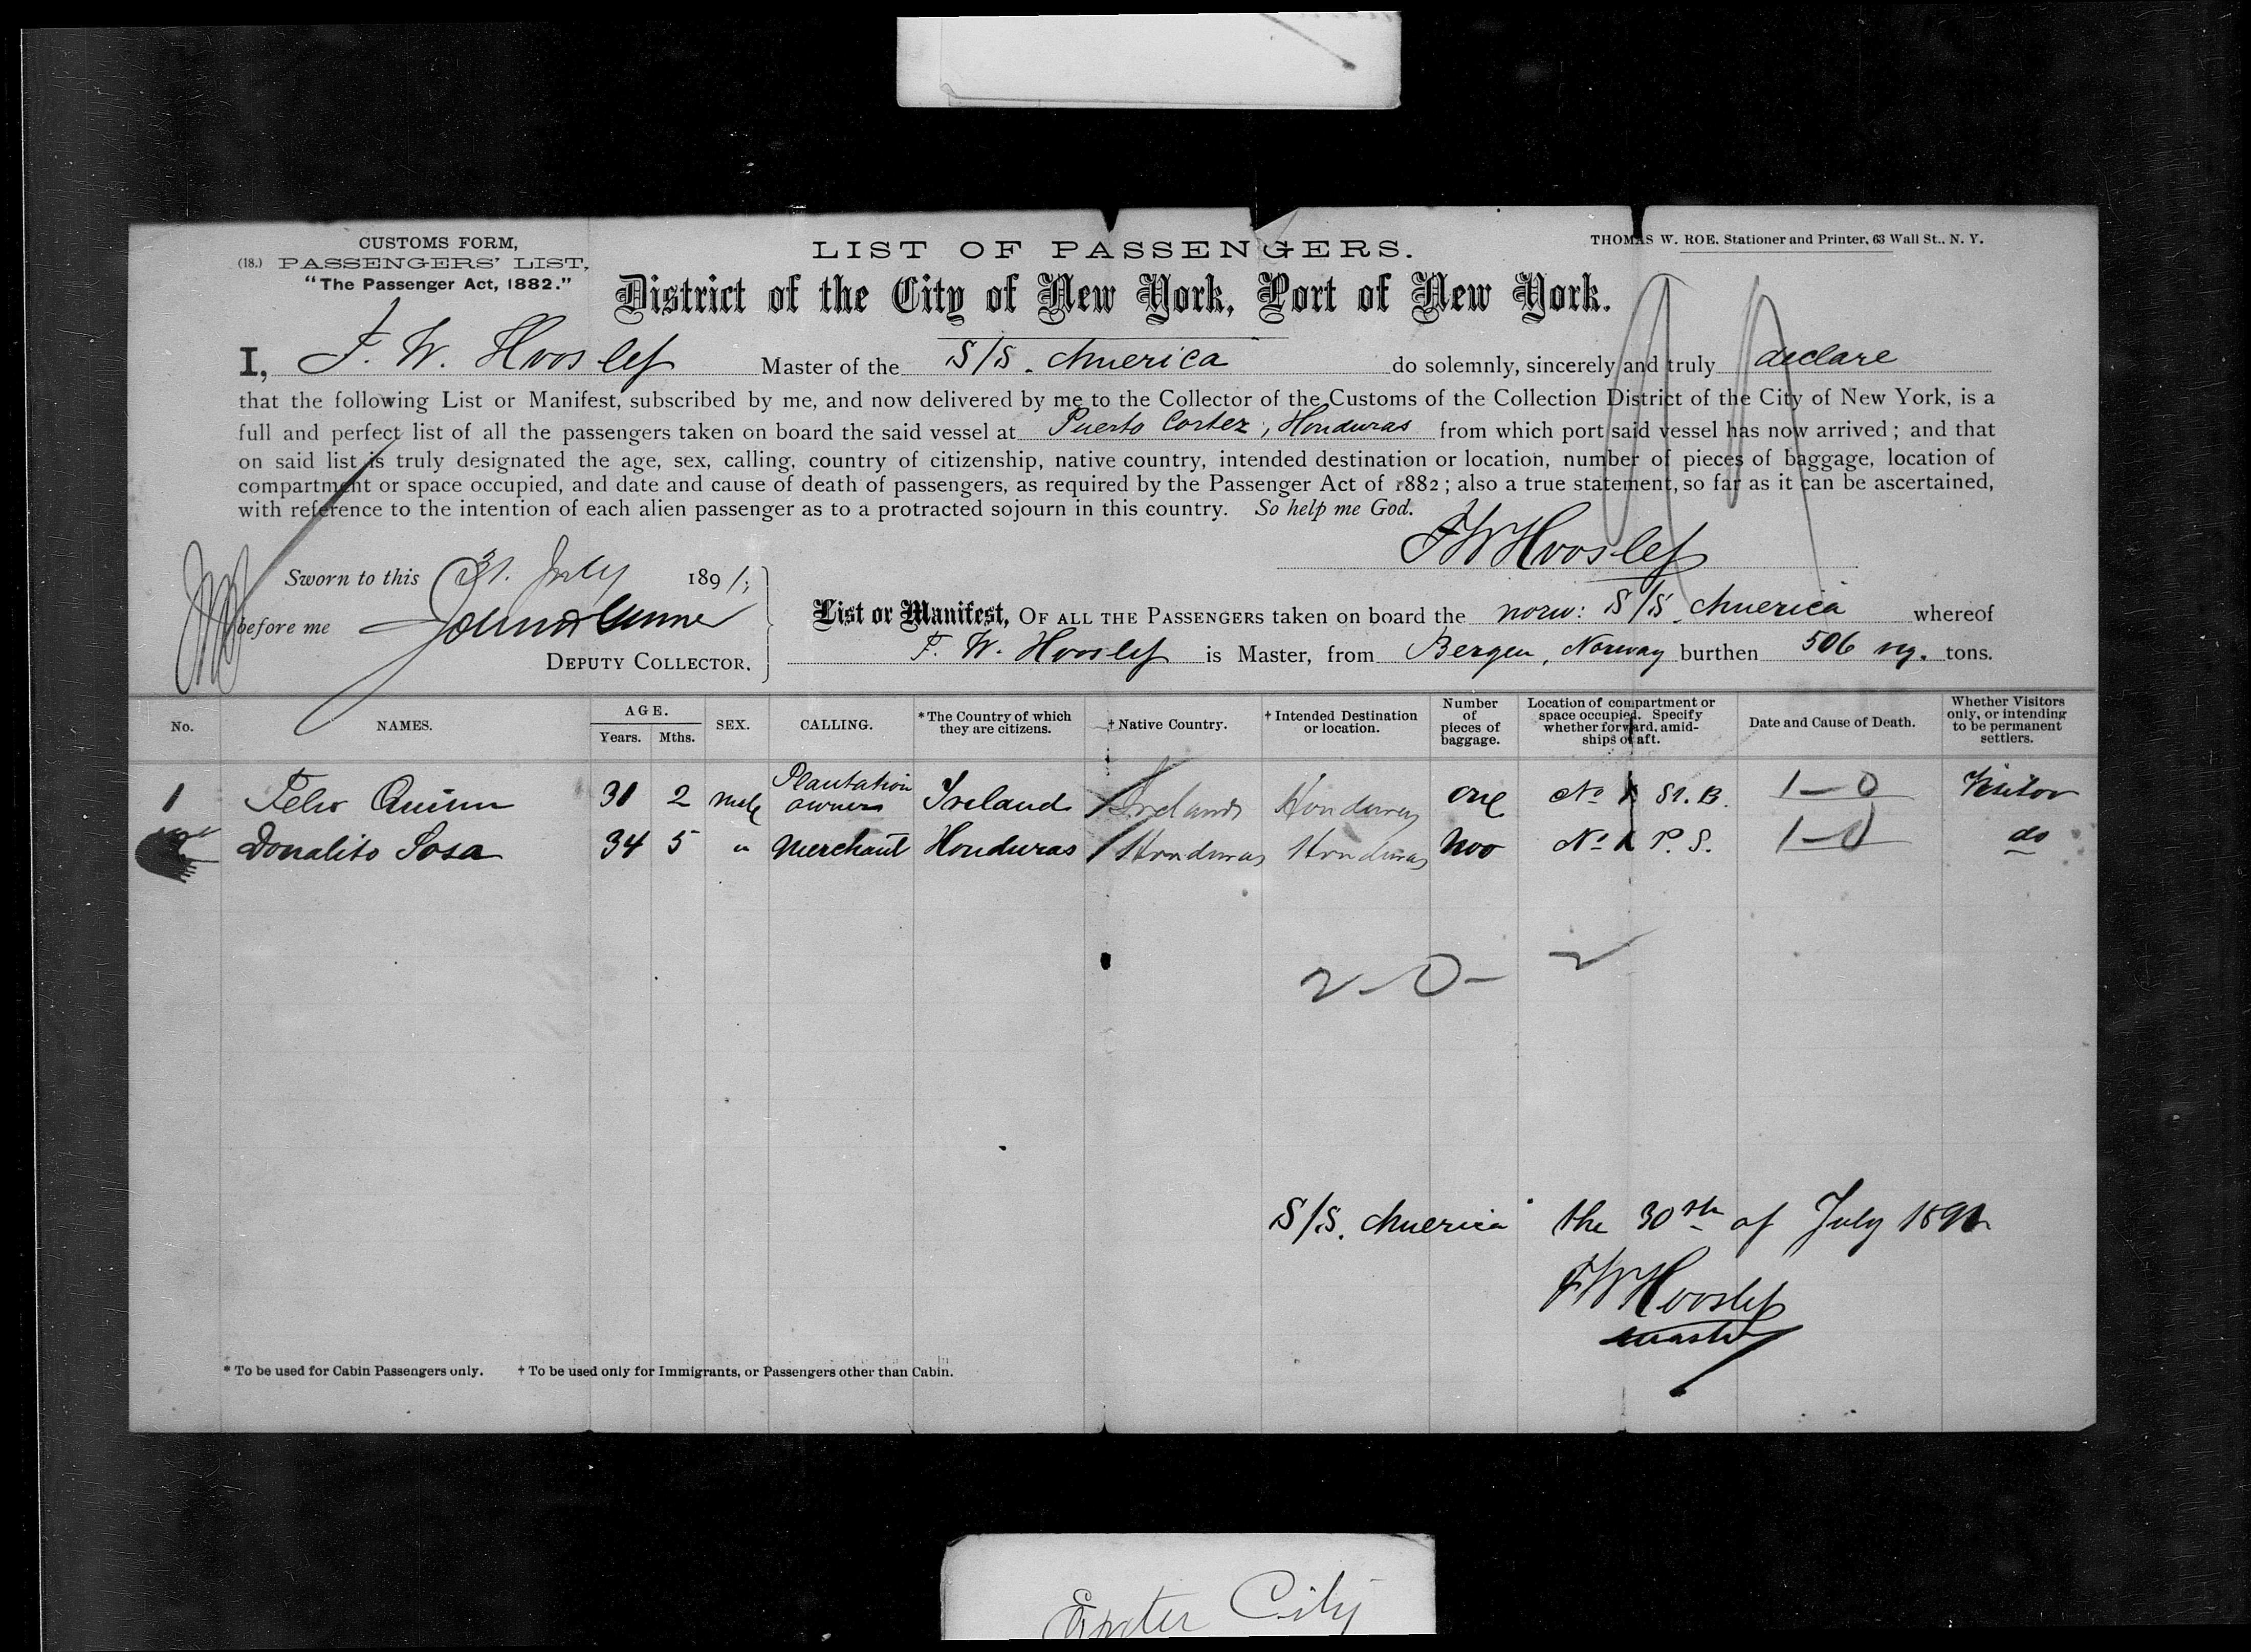 CUSTOMS FORM,
(18.) PASSENGERS' LIST,
"The Passenger Act, 1882."
LIST OF PASSENGERS.
THOMAS W. ROE, Stationer and Printer, 63 Wall St., N. Y.
District of the City of New York, Port of New York.
I, F. W. Master of the S/S. America do solemnly, sincerely and truly declare
that the following List or Manifest, subscribed by me, and now delivered by me to the Collector of the Customs of the Collection District of the City of New York, is a
full and perfect list of all the passengers taken on board the said vessel at Puerto Cortez, Honduras from which port said vessel has now arrived; and that
on said list is truly designated the age, sex, calling, country of citizenship, native country, intended destination or location, number of pieces of baggage, location of
compartment or space occupied, and date and cause of death of passengers, as required by the Passenger Act of 1882; also a true statement, so far as it can be ascertained,
with reference to the intention of each alien passenger as to a protracted sojourn in this country. So help me God.
Sworn to this 31. July 1891;
before me
DEPUTY COLLECTOR.
List or Manifest, OF ALL THE PASSENGERS taken on board the norw: S/S. America whereof
F. W. is Master, from Bergen, Norway burthen 506 tons.
No. NAMES. AGE. Years. Mths. SEX. CALLING. *The Country of which they are citizens. †Native Country. †Intended Destination or location. Number of pieces of baggage. Location of compartment or space occupied. Specify whether forward, amidships or aft. Date and Cause of Death. Whether Visitors only, or intending to be permanent settlers.
1 Quinn 31 2 male Plantation owner Ireland Ireland Honduras one No St. B. 1-0 Visitor
Donalito Sosa 34 5 " Merchant Honduras Honduras Honduras No P. S. 1-0 do
2-0-
S/S. America the 30th of July 1891
master
* To be used for Cabin Passengers only. † To be used only for Immigrants, or Passengers other than Cabin.
City